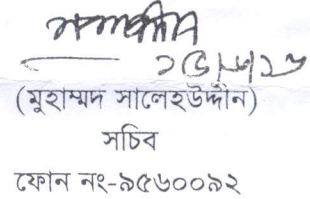 (মুহাম্মদ সালেহউদ্দীন)
সচিব
ফোন নং-৯৫৬০০৯২